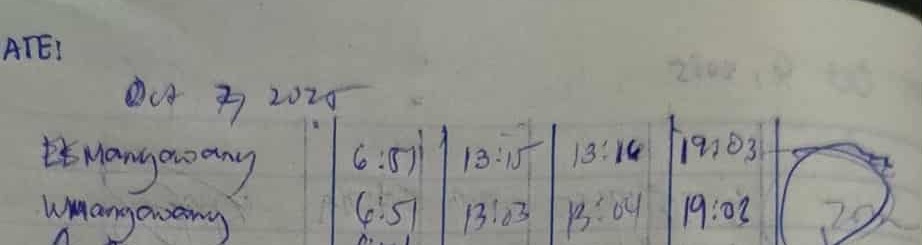 ATE:
Oct 7, 2025
EE Mangawang 6:51 13:15 13:16 19:03
WMangawang 6:51 13:03 13:04 19:02